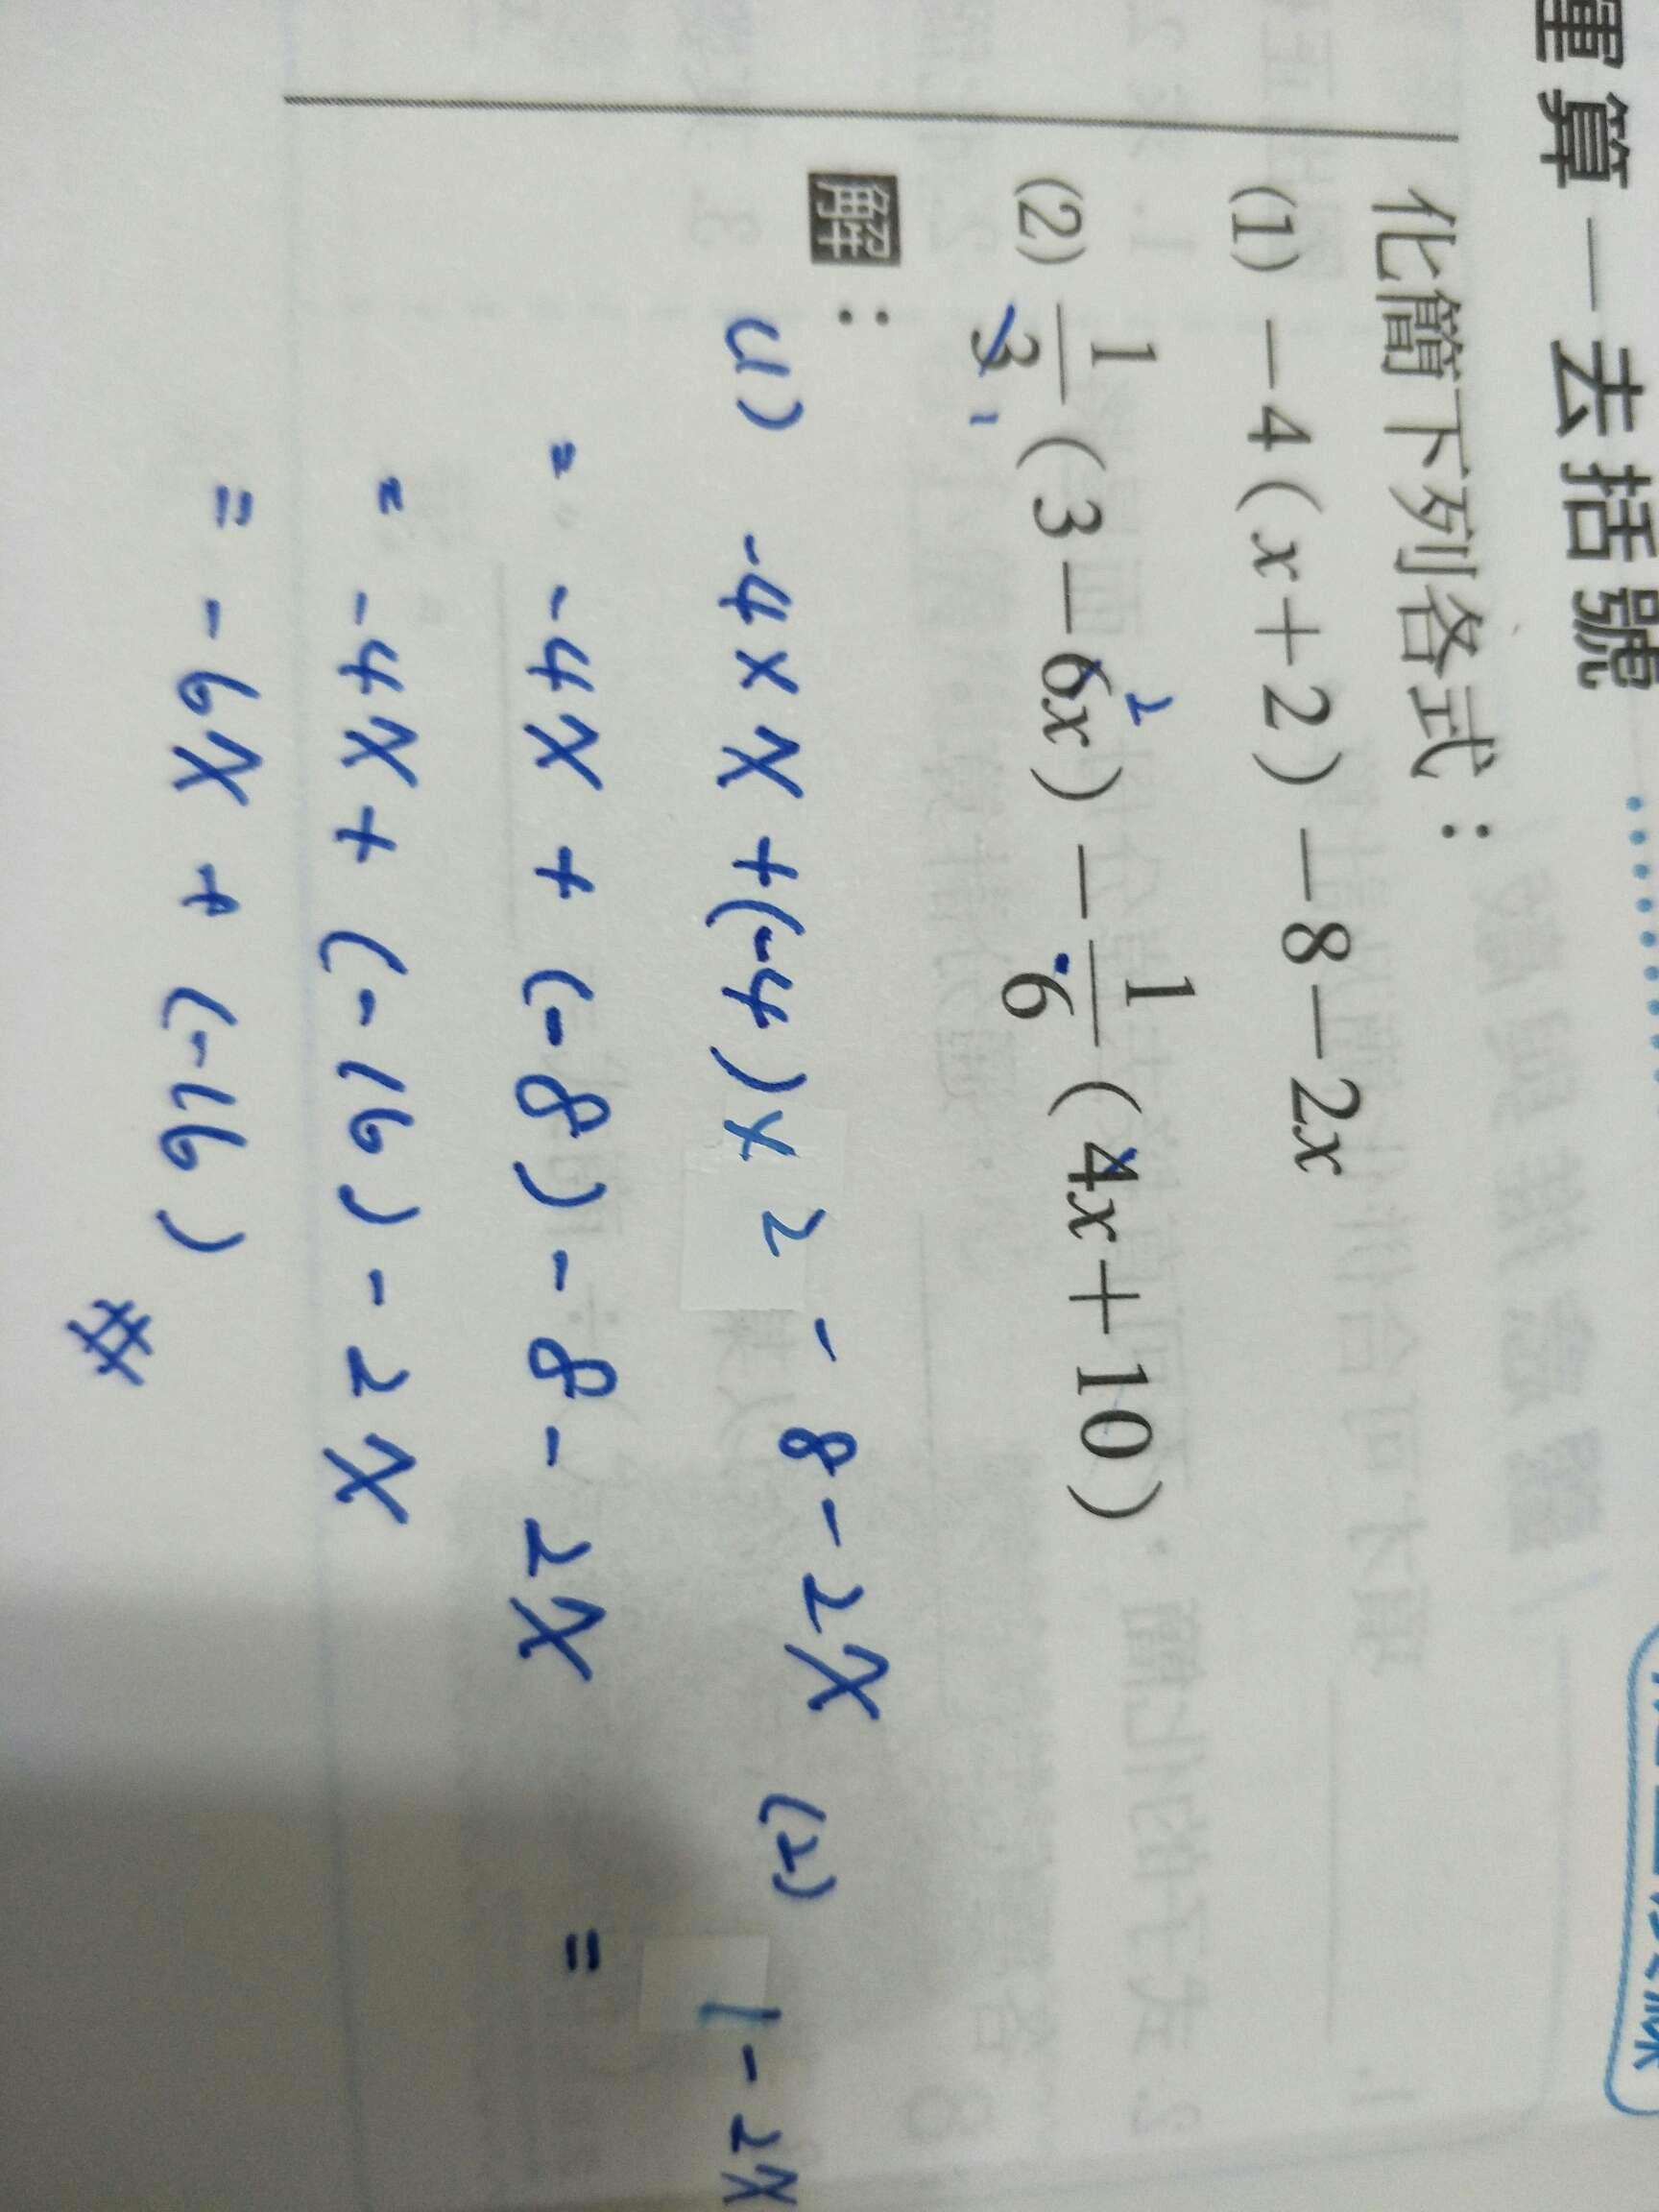 算 — 去括號
化簡下列各式：
(1) －4(x＋2)－8－2x
(2) 1/3(3－6x)－1/6(4x＋10)
2
1
解：
(1) -4 × x +(-4)× 2 - 8 - 2x (2) 1 - 2x
= -4x + (-8) - 8 - 2x =
= -4x + (-16) - 2x
= -6x + (-16)
#